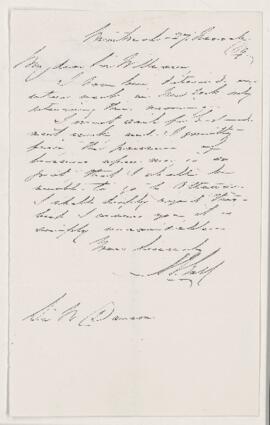 Montreal 27 
My dear Sir William
I have been detained one
entire week in New York only
returning this morning.
I must sail for England
next week and I greatly
fear the pressure of
business upon me is so
great that I shall be
unable to go to Ottawa.
I shall deeply regret this
but I assure you it is
simply unavoidable.
Yours sincerely
Sir W Dawson